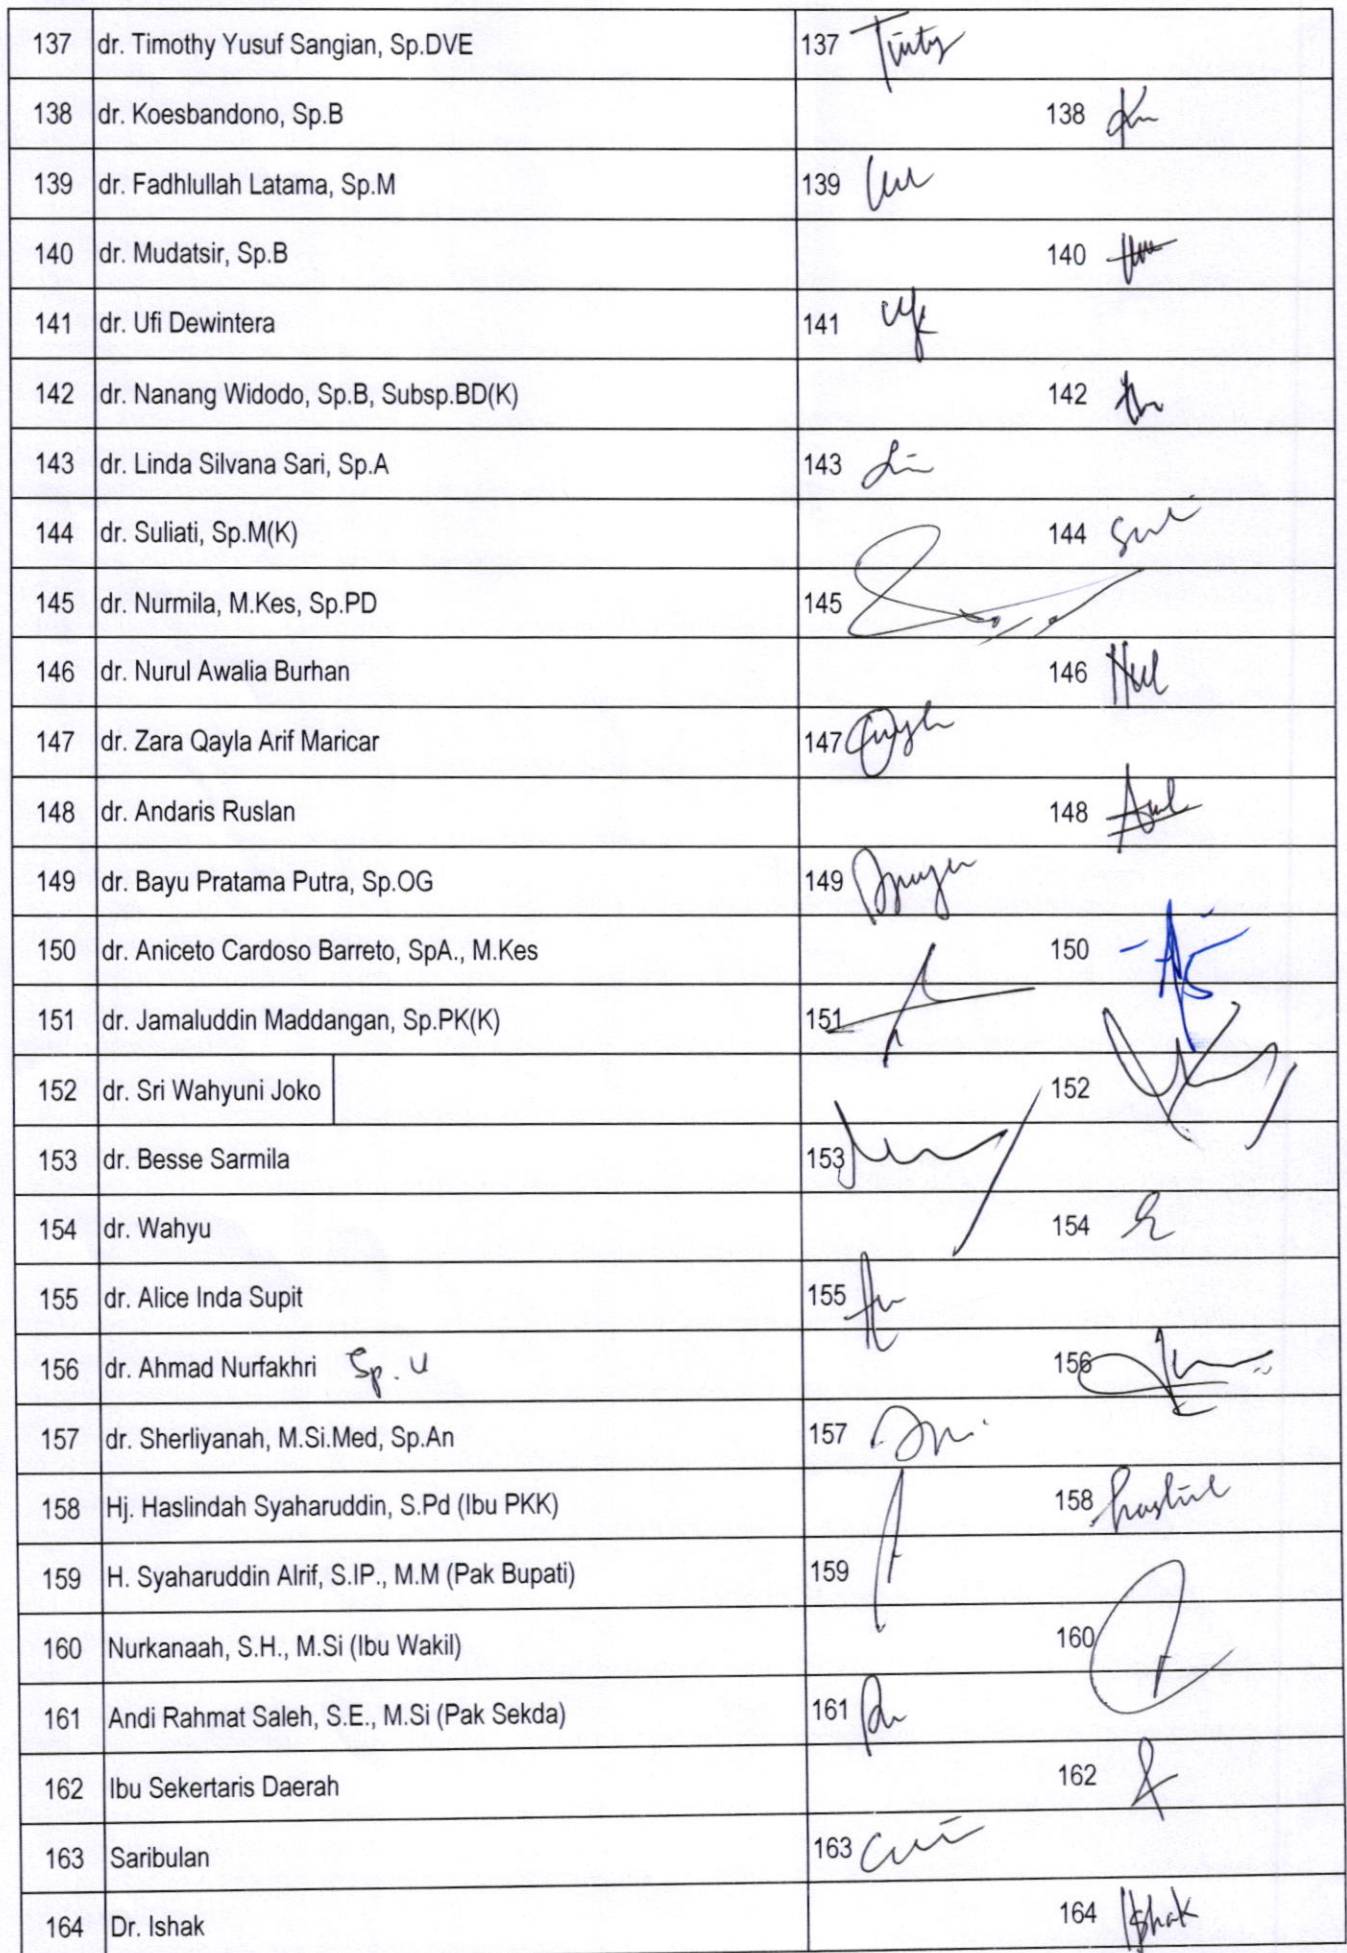 137 dr. Timothy Yusuf Sangian, Sp.DVE 137
138 dr. Koesbandono, Sp.B 138
139 dr. Fadhlullah Latama, Sp.M 139
140 dr. Mudatsir, Sp.B 140
141 dr. Ufi Dewintera 141
142 dr. Nanang Widodo, Sp.B, Subsp.BD(K) 142
143 dr. Linda Silvana Sari, Sp.A 143
144 dr. Suliati, Sp.M(K) 144
145 dr. Nurmila, M.Kes, Sp.PD 145
146 dr. Nurul Awalia Burhan 146
147 dr. Zara Qayla Arif Maricar 147
148 dr. Andaris Ruslan 148
149 dr. Bayu Pratama Putra, Sp.OG 149
150 dr. Aniceto Cardoso Barreto, SpA., M.Kes 150
151 dr. Jamaluddin Maddangan, Sp.PK(K) 151
152 dr. Sri Wahyuni Joko 152
153 dr. Besse Sarmila 153
154 dr. Wahyu 154
155 dr. Alice Inda Supit 155
156 dr. Ahmad Nurfakhri Sp. U 156
157 dr. Sherliyanah, M.Si.Med, Sp.An 157
158 Hj. Haslindah Syaharuddin, S.Pd (Ibu PKK) 158
159 H. Syaharuddin Alrif, S.IP., M.M (Pak Bupati) 159
160 Nurkanaah, S.H., M.Si (Ibu Wakil) 160
161 Andi Rahmat Saleh, S.E., M.Si (Pak Sekda) 161
162 Ibu Sekertaris Daerah 162
163 Saribulan 163
164 Dr. Ishak 164 Ishak